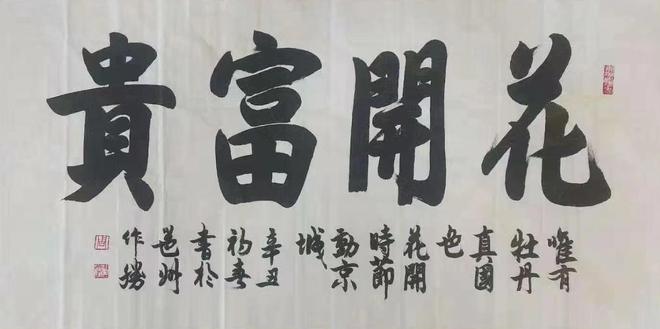 花開富貴
唯有
牡丹
真國
色
花開
時節
動京
城
辛丑
初春
書於
邕州